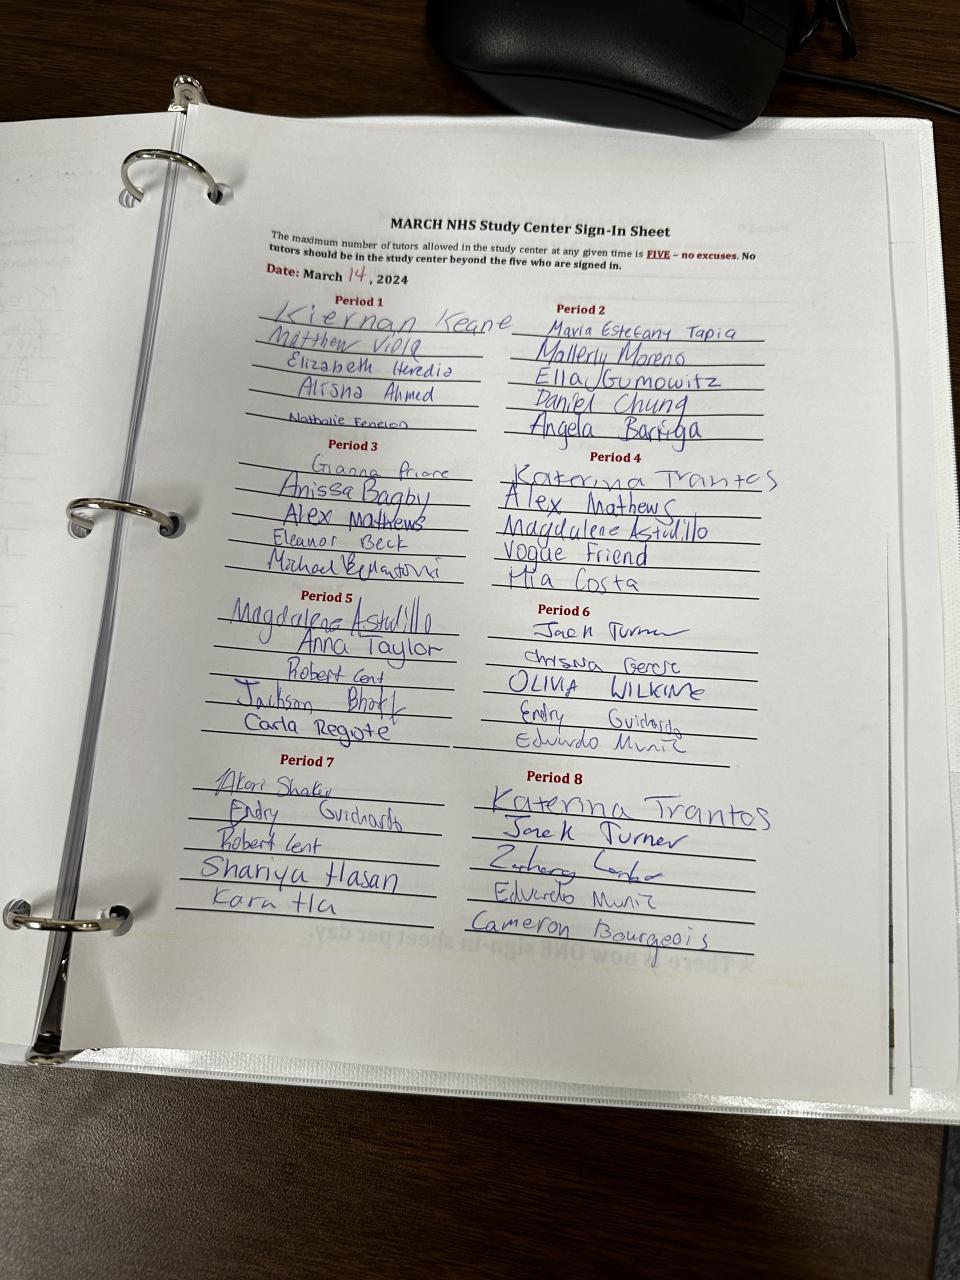 MARCH NHS Study Center Sign-In Sheet
The maximum number of tutors allowed in the study center at any given time is FIVE – no excuses. No
tutors should be in the study center beyond the five who are signed in.
Date: March 14, 2024
Period 1
Kiernan Keane
Matthew Viola
Elizabeth Heredia
Alisha Ahmed
Nathalie Fenelon
Period 2
Maria Estefany Tapia
Mallerly Moreno
Ella Gumowitz
Daniel Chung
Angela Barriga
Period 3
Gianna Priore
Anissa Bagby
Alex Mathews
Eleanor Beck
Michael Bellantoni
Period 4
Katerina Trantos
Alex Mathews
Magdalene Astudillo
Vogue Friend
Mia Costa
Period 5
Magdalene Astudillo
Anna Taylor
Robert Cent
Jackson
Carla Regjote
Period 6
Jack Turner
OLIVIA
Endry Guichardo
Eduardo Muniz
Period 7
Endry Guichardo
Robert Cent
Shaniya Hasan
Kara
Period 8
Katerina Trantos
Jack Turner
Eduardo Muniz
Cameron Bourgeois
★There is now ONE sign-in sheet per day.